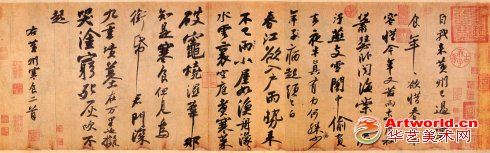 自我來黃州已過三寒
食年年欲惜春春去不
容惜今年又苦雨兩月秋
蕭瑟臥聞海棠花泥
汙燕支雪闇中偷負
去夜半真有力何殊病少
年子病起須已白
春江欲入戶雨勢來
不已雨小屋如漁舟濛濛
水雲裏空庖煮寒菜
破竈燒濕葦那
知是寒食但見烏
銜帋君門深
九重墳墓在萬里也擬
哭塗窮死灰吹不
起
右黃州寒食二首
Artworld.cn
华艺美术网